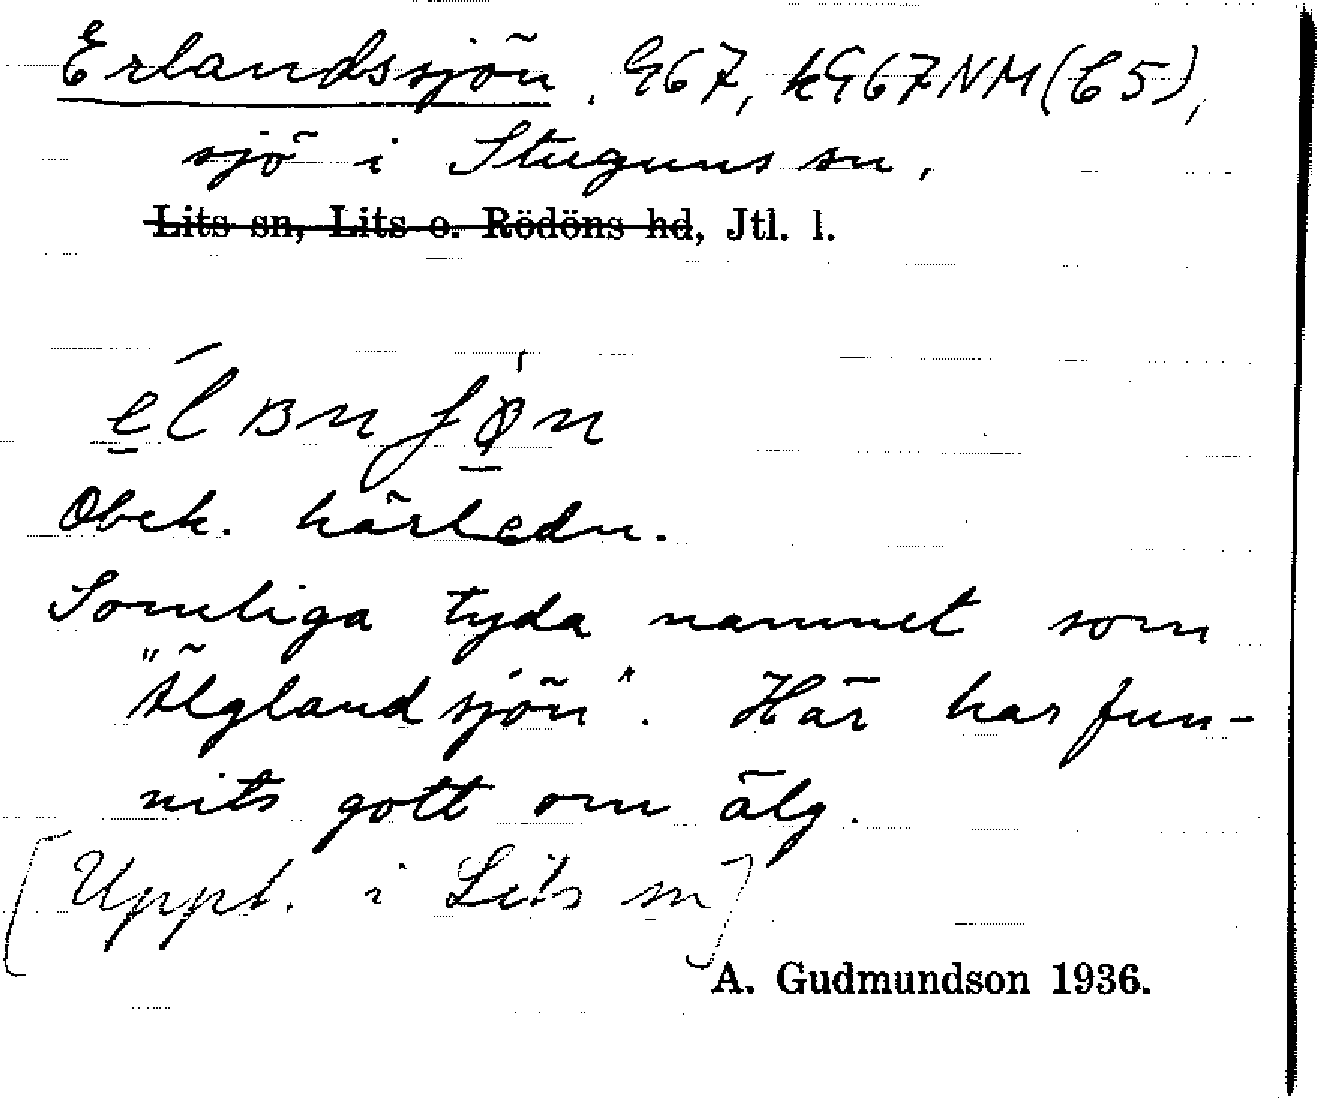 Erlandssjön, G67, kG67NM(C5),
sjö i Stuguns sn,
Lits sn, Lits o. Rödöns hd, Jtl. l.
Obek. härledn.
Somliga tyda namnet som
"Älglandsjön". Här har fun-
nits gott om älg.
[Uppt. i Lits sn]
A. Gudmundson 1936.